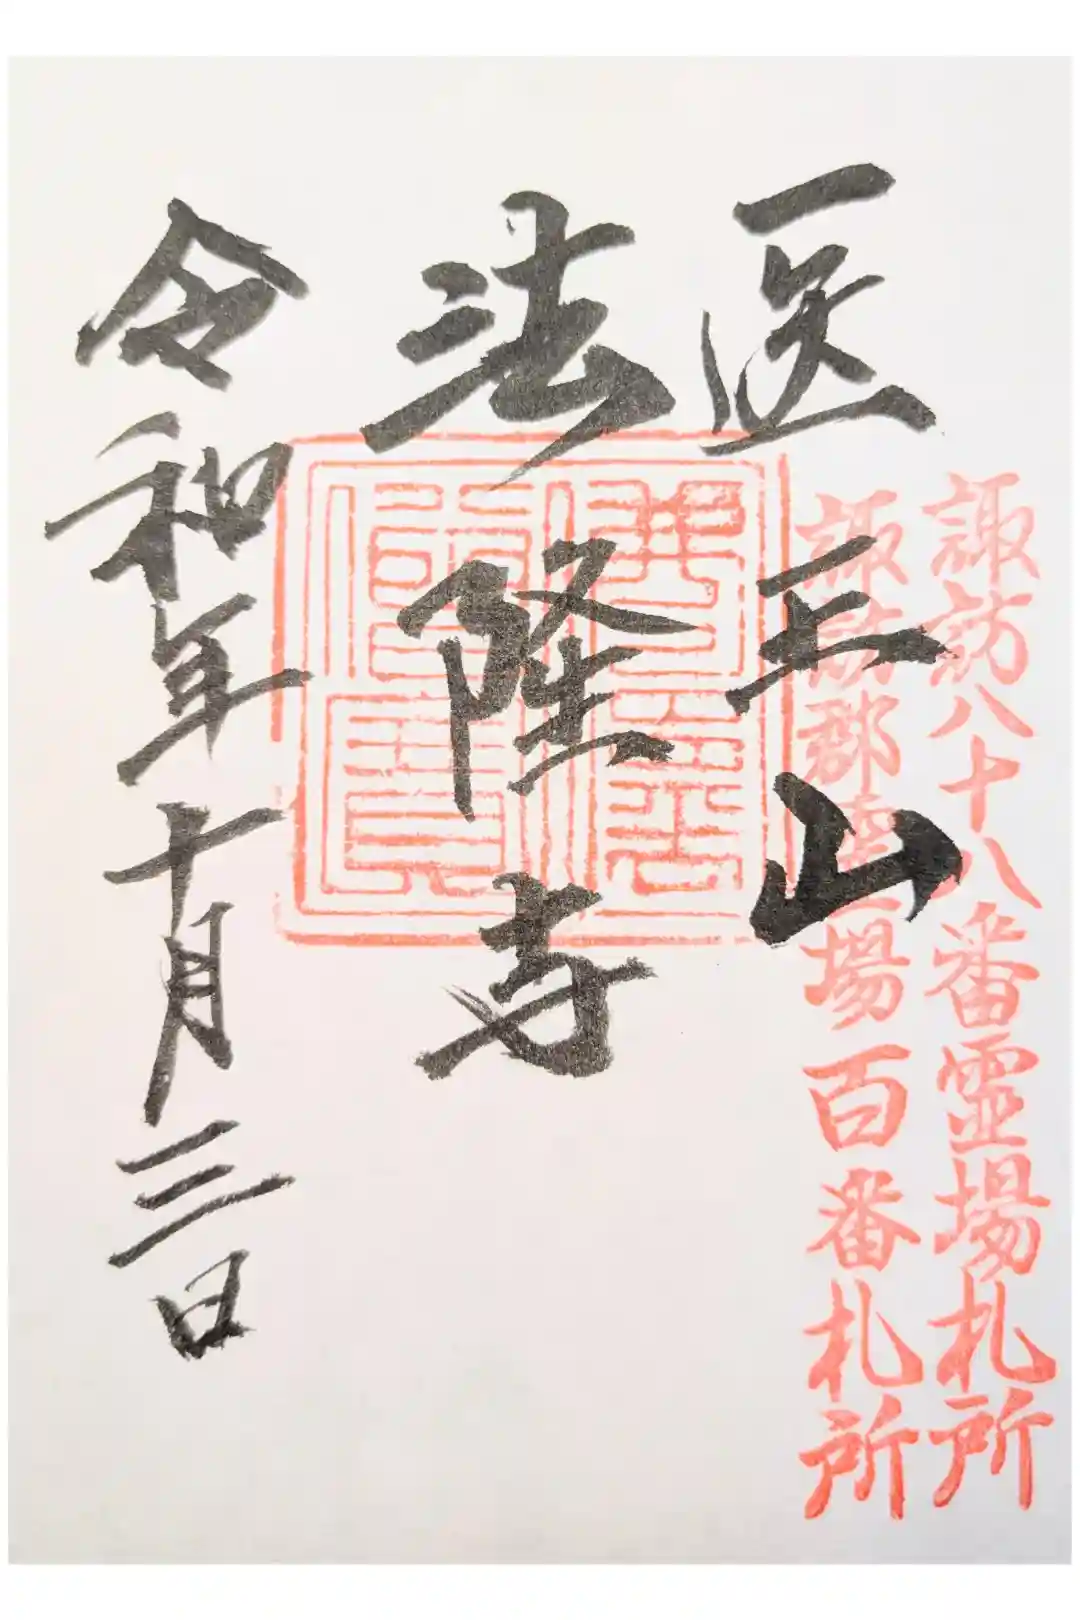 諏訪八十八番霊場札所
諏訪郡霊場百番札所
医王山
法隆寺
令和年十月三日